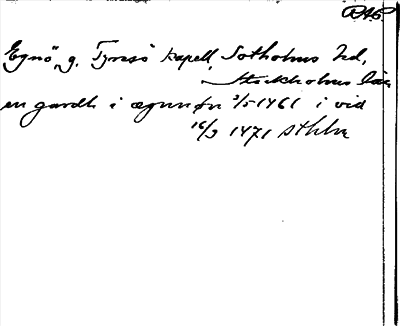 Egnö, g. Tyresö kapell, Sotholms hd,
Stockholms län
en gardh i ægnnø 3/5 1461 i vid
16/3 1471 Sthlm